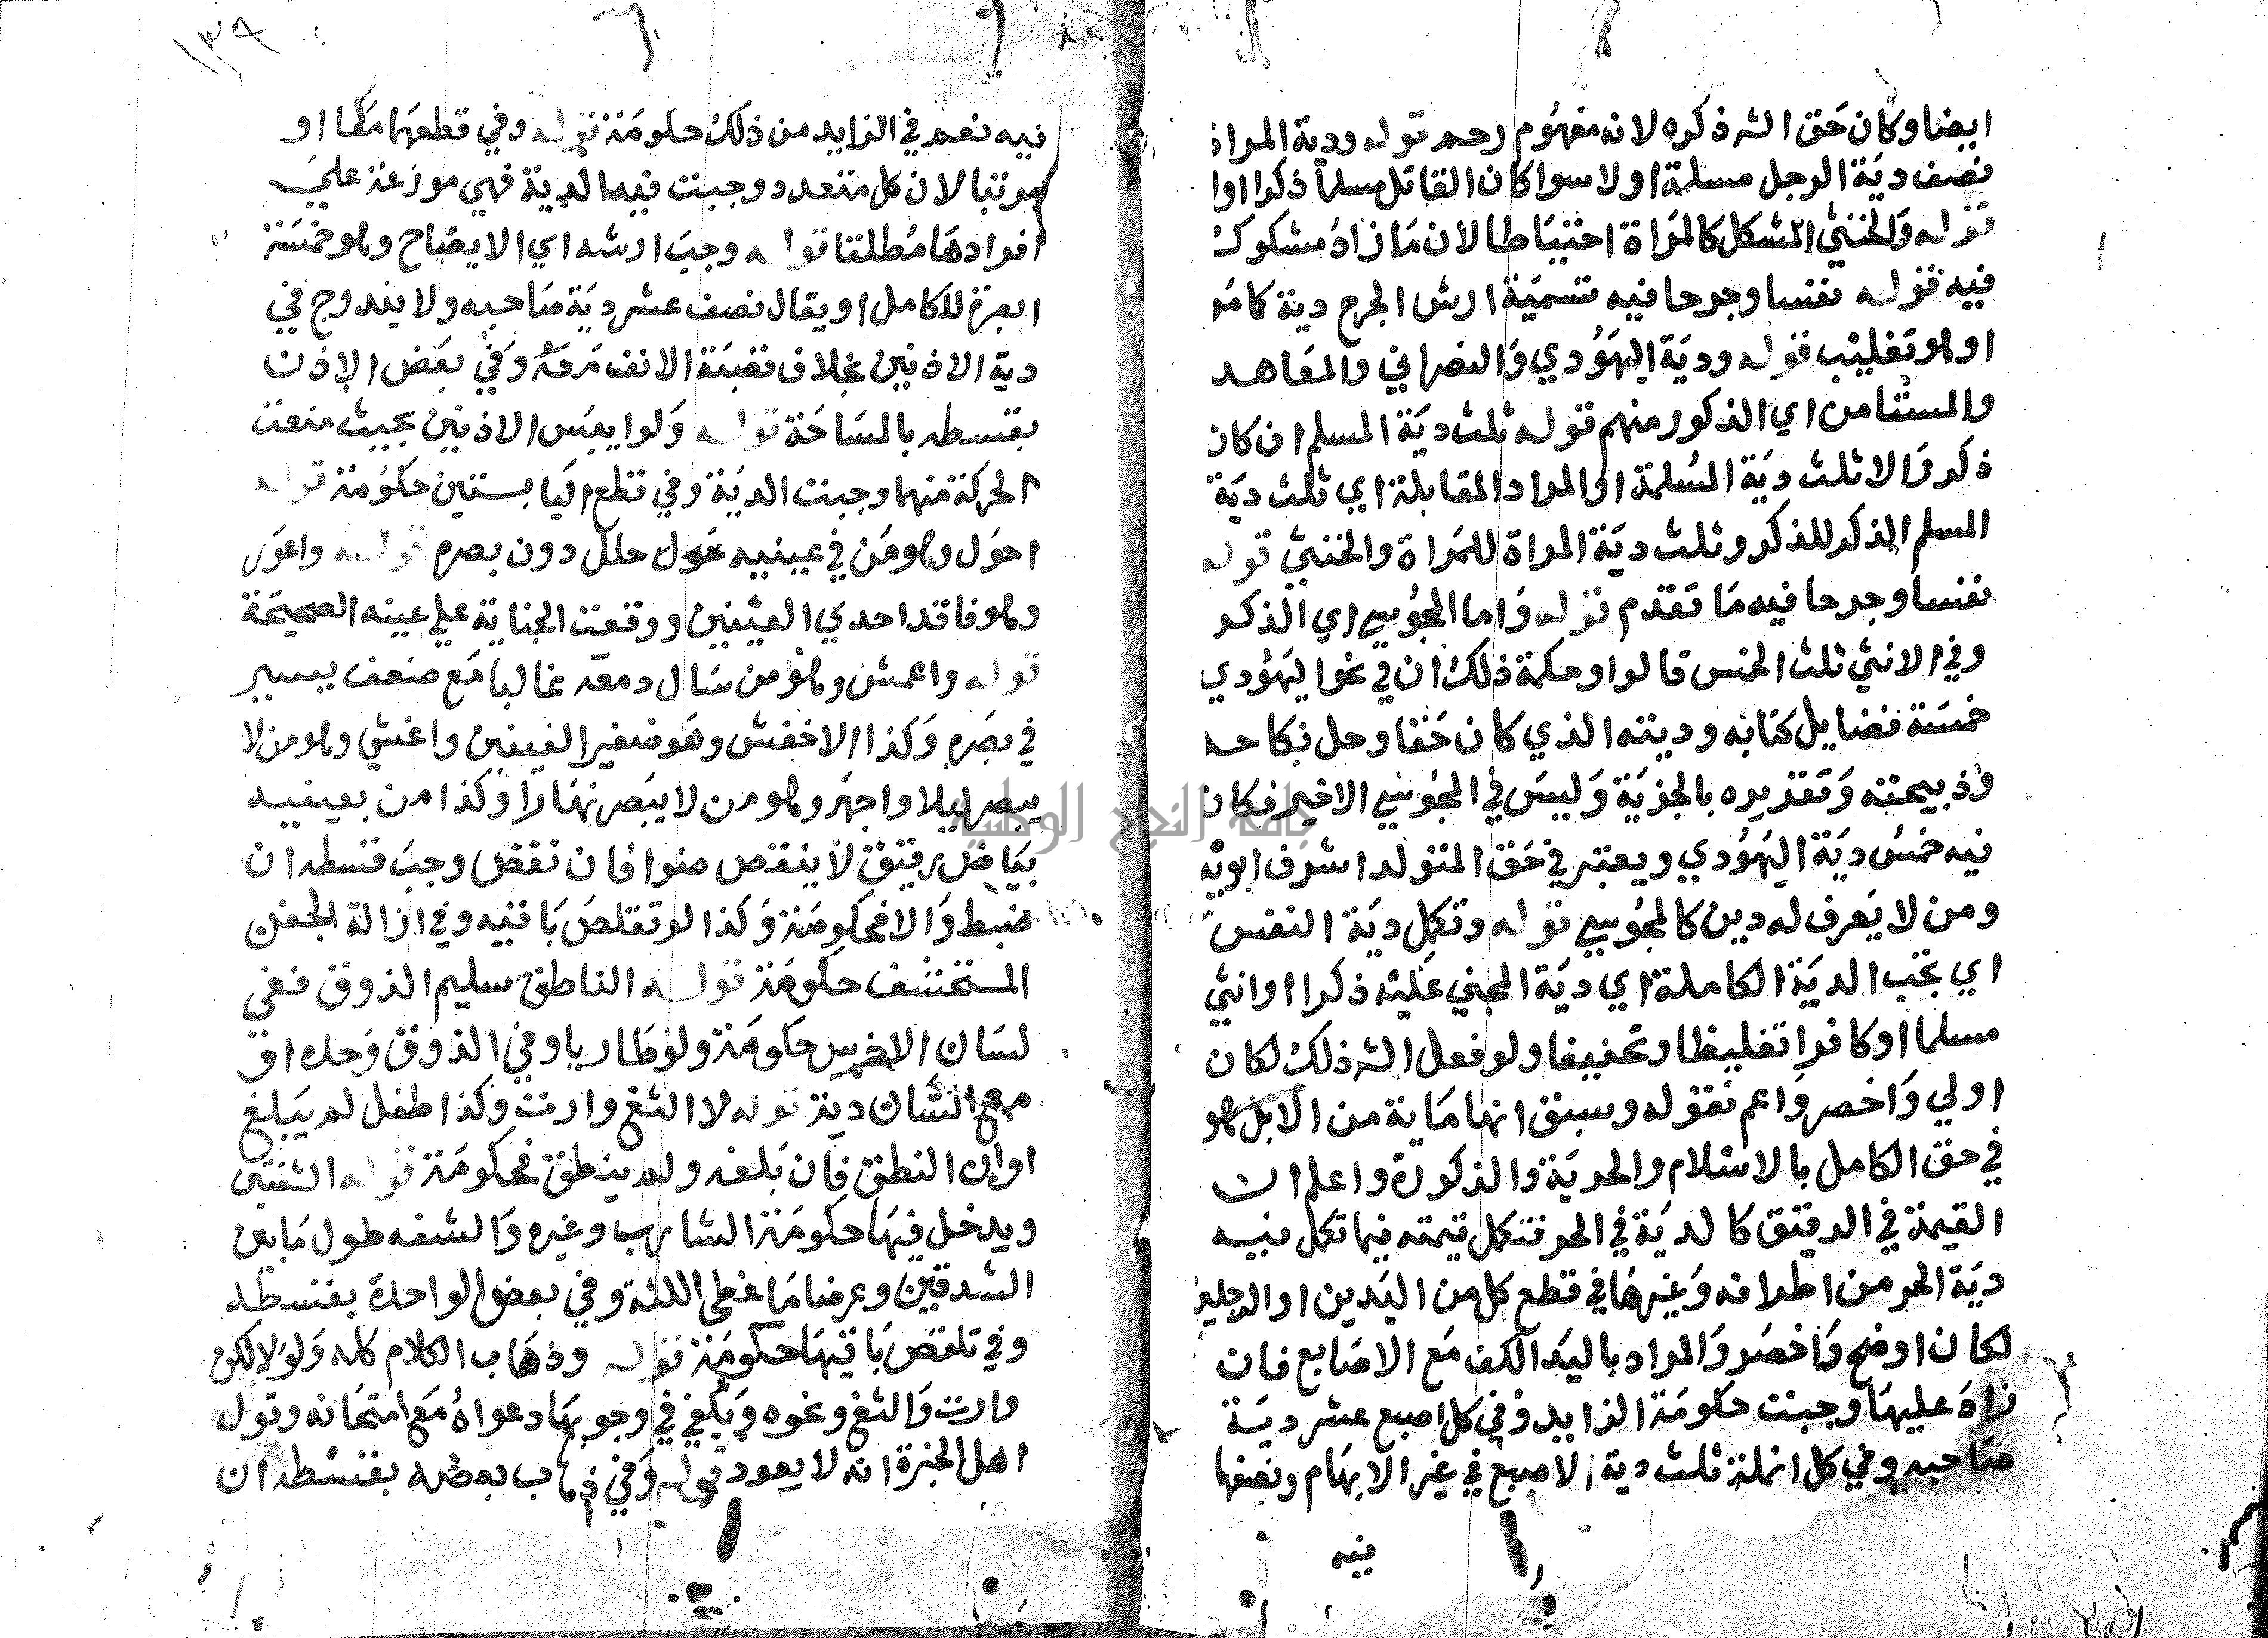 ايضا وكان حق الشه ذكره لانه مفهوم رحم قوله ودية المراة
نصف دية الرجل مسلمة اولا سوا كان القاتل مسلما ذكرا اولا
قوله والخنثي المشكل كالمراة احتياطا لان ما زاد مشكوك
فيه قوله نفسا وجرحا فيه تسمية ارش الجرح دية كما مر
او هو تغليب قوله ودية اليهودي والنصراني والمعاهد
والمستامن اي الذكور منهم قوله ثلث دية المسلم ان كان
ذكر والا ثلث دية المسلمة او المراد المقابلة اي ثلث دية
المسلم الذكر للذكر وثلث دية المراة للمراة والخنثي قوله
نفسا وجرحا فيه ما تقدم قوله واما المجوسي اي الذكر
وفي الانثي ثلث الخمس قالوا وحكمة ذلك ان في نحو اليهودي
خمسة فضايل كتابه ودينه الذي كان حقا وحل نكاحه
وذبيحته وتقريره بالجزية وليس في المجوسي الا الاخير فكان
فيه خمس دية اليهودي ويعتبر في حق المتولد اشرف ابويه
ومن لا يعرف له دين كالمجوسي قوله وتكمل دية النفس
اي تجب الدية الكاملة اي دية المجني عليه ذكرا او انثي
مسلما او كافرا تغليظا وتخفيفا ولو فعل الشه ذلك لكان
اولي واخصر واعم فقوله وسبق انها ماية من الابل هو
في حق الكامل بالاسلام والحرية والذكورة واعلم ان
القيمة في الرقيق كالدية في الحر فتكمل قيمته فيما تكمل فيه
دية الحر من اطرافه وغيرها في قطع كل من اليدين او الرجلين
لكان اوضح واخصر والمراد باليد الكف مع الاصابع فان
زاد عليها وجبت حكومة الزايد وفي كل اصبع عشر دية
صاحبه وفي كل انملة ثلث دية الاصبع في غير الابهام ونصفها
فيه
١٣٩
فيه نعم في الزايد من ذلك حكومة قوله وفي قطعهما معا او
مرتبا لان كل متعدد وجبت فيه الدية فهي موزعة علي
افرادها مطلقا قوله وجب ارشه اي الايضاح وهو خمسة
ابعرة للكامل او يقال نصف عشر دية صاحبه ولا يندرج في
دية الاذنين بخلاف قصبة الانف مرقه وفي بعض الاذن
بقسطه بالمساحة قوله ولو ايبس الاذنين بحيث منعت
الحركة منهما وجبت الدية وفي قطع اليابستين حكومة قوله
احول وهو من في عينيه خلل دون بصره قوله واعور
وهو فاقد احدي العينين ووقعت الجناية علي عينه الصحيحة
قوله واعمش وهو من سال دمعه غالبا مع ضعف يسير
في بصره وكذا الاخفش وهو صغير العينين واعشي وهو من لا
يبصر ليلا واجهر وهو من لا يبصر نهارا وكذا من بعينيه
بياض رقيق لا ينقص ضوا فان نقص وجب قسطه ان
ضبط والا فحكومة وكذا لو تقلص باقيه وفي ازالة الجفن
المستحشف حكومة قوله الناطق سليم الذوق ففي
لسان الاخرس حكومة ولو طاريا وفي الذوق وحده او
مع اللسان دية قوله لا الثغ وارت وكذا طفل لم يبلغ
اوان النطق فان بلغه ولم ينطق فحكومة قوله الشفتين
ويدخل فيها حكومة الشارب وغيره والشفه طول ما بين
الشدقين وعرضا ما غطي اللثة وفي بعض الواحدة بقسطه
وفي تلقص باقيها حكومة قوله وذهاب الكلام كله ولو لالكن
وارت والثغ ونحوه ويكفي في وجوبها دعواه مع امتحانه وقول
اهل الخبرة انه لا يعود قوله وفي ذهاب بعضه بقسطه ان
جامعة النجاح الوطنية